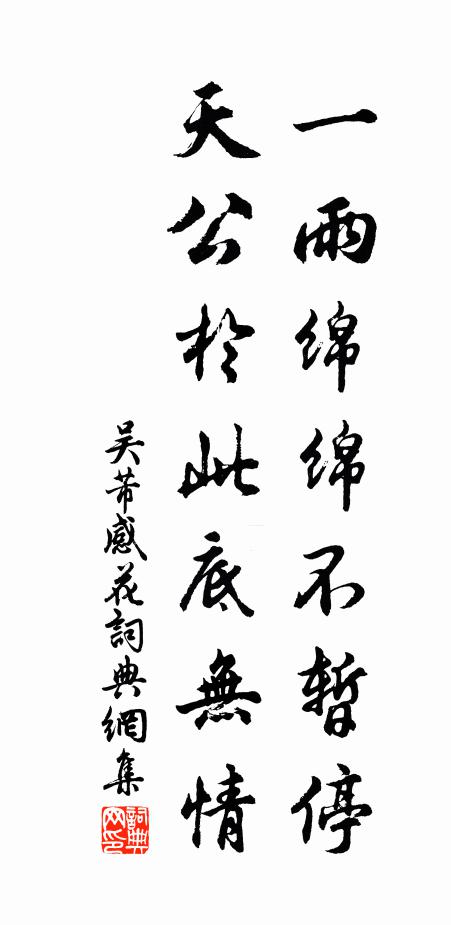 一雨绵绵不暫停
天公於此底無情
吴芾感花詞典網集
詞典网印